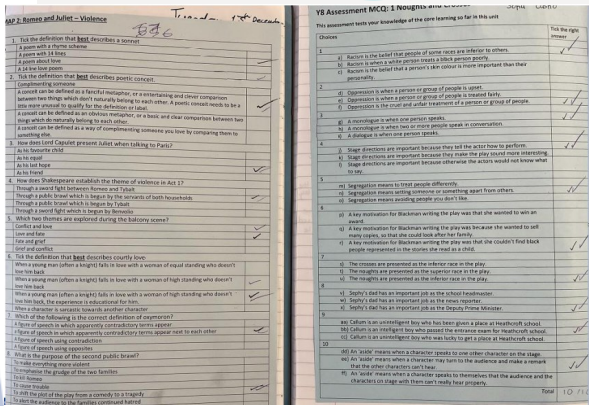 MAP 2: Romeo and Juliet – Violence
1. Tick the definition that best describes a sonnet
A poem with a rhyme scheme
A poem with 14 lines
A poem about love
A 14 line love poem
2. Tick the definition that best describes poetic conceit.
Complimenting someone
A conceit can be defined as a fanciful metaphor, or a entertaining and clever comparison
between two things which don't naturally belong to each other. A poetic conceit needs to be a
little more unusual to qualify for the definition or label.
A conceit can be defined as an obvious metaphor, or a basic and clear comparison between two
things which do naturally belong to each other.
A conceit can be defined as a way of complimenting someone you love by comparing them to
something else.
3. How does Lord Capulet present Juliet when talking to Paris?
As his favourite child
As his equal
As his last hope
As his friend
4. How does Shakespeare establish the theme of violence in Act 1?
Through a sword fight between Romeo and Tybalt
Through a public brawl which is begun by the servants of both households
Through a public brawl which is begun by Tybalt
Through a sword fight which is begun by Benvolio
5. Which two themes are explored during the balcony scene?
Conflict and love
Love and fate
Fate and grief
Grief and conflict
6. Tick the definition that best describes courtly love
When a young man (often a knight) falls in love with a woman of equal standing who doesn't
love him back
When a young man (often a knight) falls in love with a woman of high standing who doesn't
love him back
When a young man (often a knight) falls in love with a woman of high standing who doesn't
love him back, the experience is educational for him.
When a character is sarcastic towards another character
7. Which of the following is the correct definition of oxymoron?
A figure of speech in which apparently contradictory terms appear
A figure of speech in which apparently contradictory terms appear next to each other
A figure of speech using contradiction
A figure of speech using opposites
8. What is the purpose of the second public brawl?
To make everything more violent
To emphasise the grudge of the two families
To kill Romeo
To cause trouble
To shift the plot of the play from a comedy to a tragedy
To alert the audience to the families continued hatred
Y8 Assessment MCQ: 1 Noughts and
This assessment tests your knowledge of the core learning so far in this unit
Choices
Tick the right
answer
1
a) Racism is the belief that people of some races are inferior to others.
b) Racism is when a white person treats a black person poorly.
c) Racism is the belief that a person's skin colour is more important than their
personality.
2
d) Oppression is when a person or group of people is upset.
e) Oppression is when a person or group of people is treated fairly.
f) Oppression is the cruel and unfair treatment of a person or group of people.
3
g) A monologue is when one person speaks.
h) A monologue is when two or more people speak in conversation.
i) A dialogue is when one person speaks.
4
j) Stage directions are important because they tell the actor how to perform.
k) Stage directions are important because they make the play sound more interesting.
l) Stage directions are important because otherwise the actors would not know what
to say.
5
m) Segregation means to treat people differently.
n) Segregation means setting someone or something apart from others.
o) Segregation means avoiding people you don't like.
6
p) A key motivation for Blackman writing the play was that she wanted to win an
award.
q) A key motivation for Blackman writing the play was because she wanted to sell
many copies, so that she could look after her family.
r) A key motivation for Blackman writing the play was that she couldn't find black
people represented in the stories she read as a child.
7
s) The crosses are presented as the inferior race in the play.
t) The noughts are presented as the superior race in the play.
u) The noughts are presented as the inferior race in the play.
8
v) Sephy's dad has an important job as the school headmaster.
w) Sephy's dad has an important job as the news reporter.
x) Sephy's dad has an important job as the Deputy Prime Minister
9
aa) Callum is an unintelligent boy who has been given a place at Heathcroft school.
bb) Callum is an intelligent boy who passed the entrance exam for Heathcroft school.
cc) Callum is an unintelligent boy who was lucky to get a place at Heathcroft school.
10
dd) An 'aside' means when a character speaks to one other character on the stage.
ee) An 'aside' means when a character may turn to the audience and make a remark
that the other characters can't hear.
ff) An 'aside' means when a character speaks to themselves that the audience and the
characters on stage with them can't really hear properly.
Total 10/10